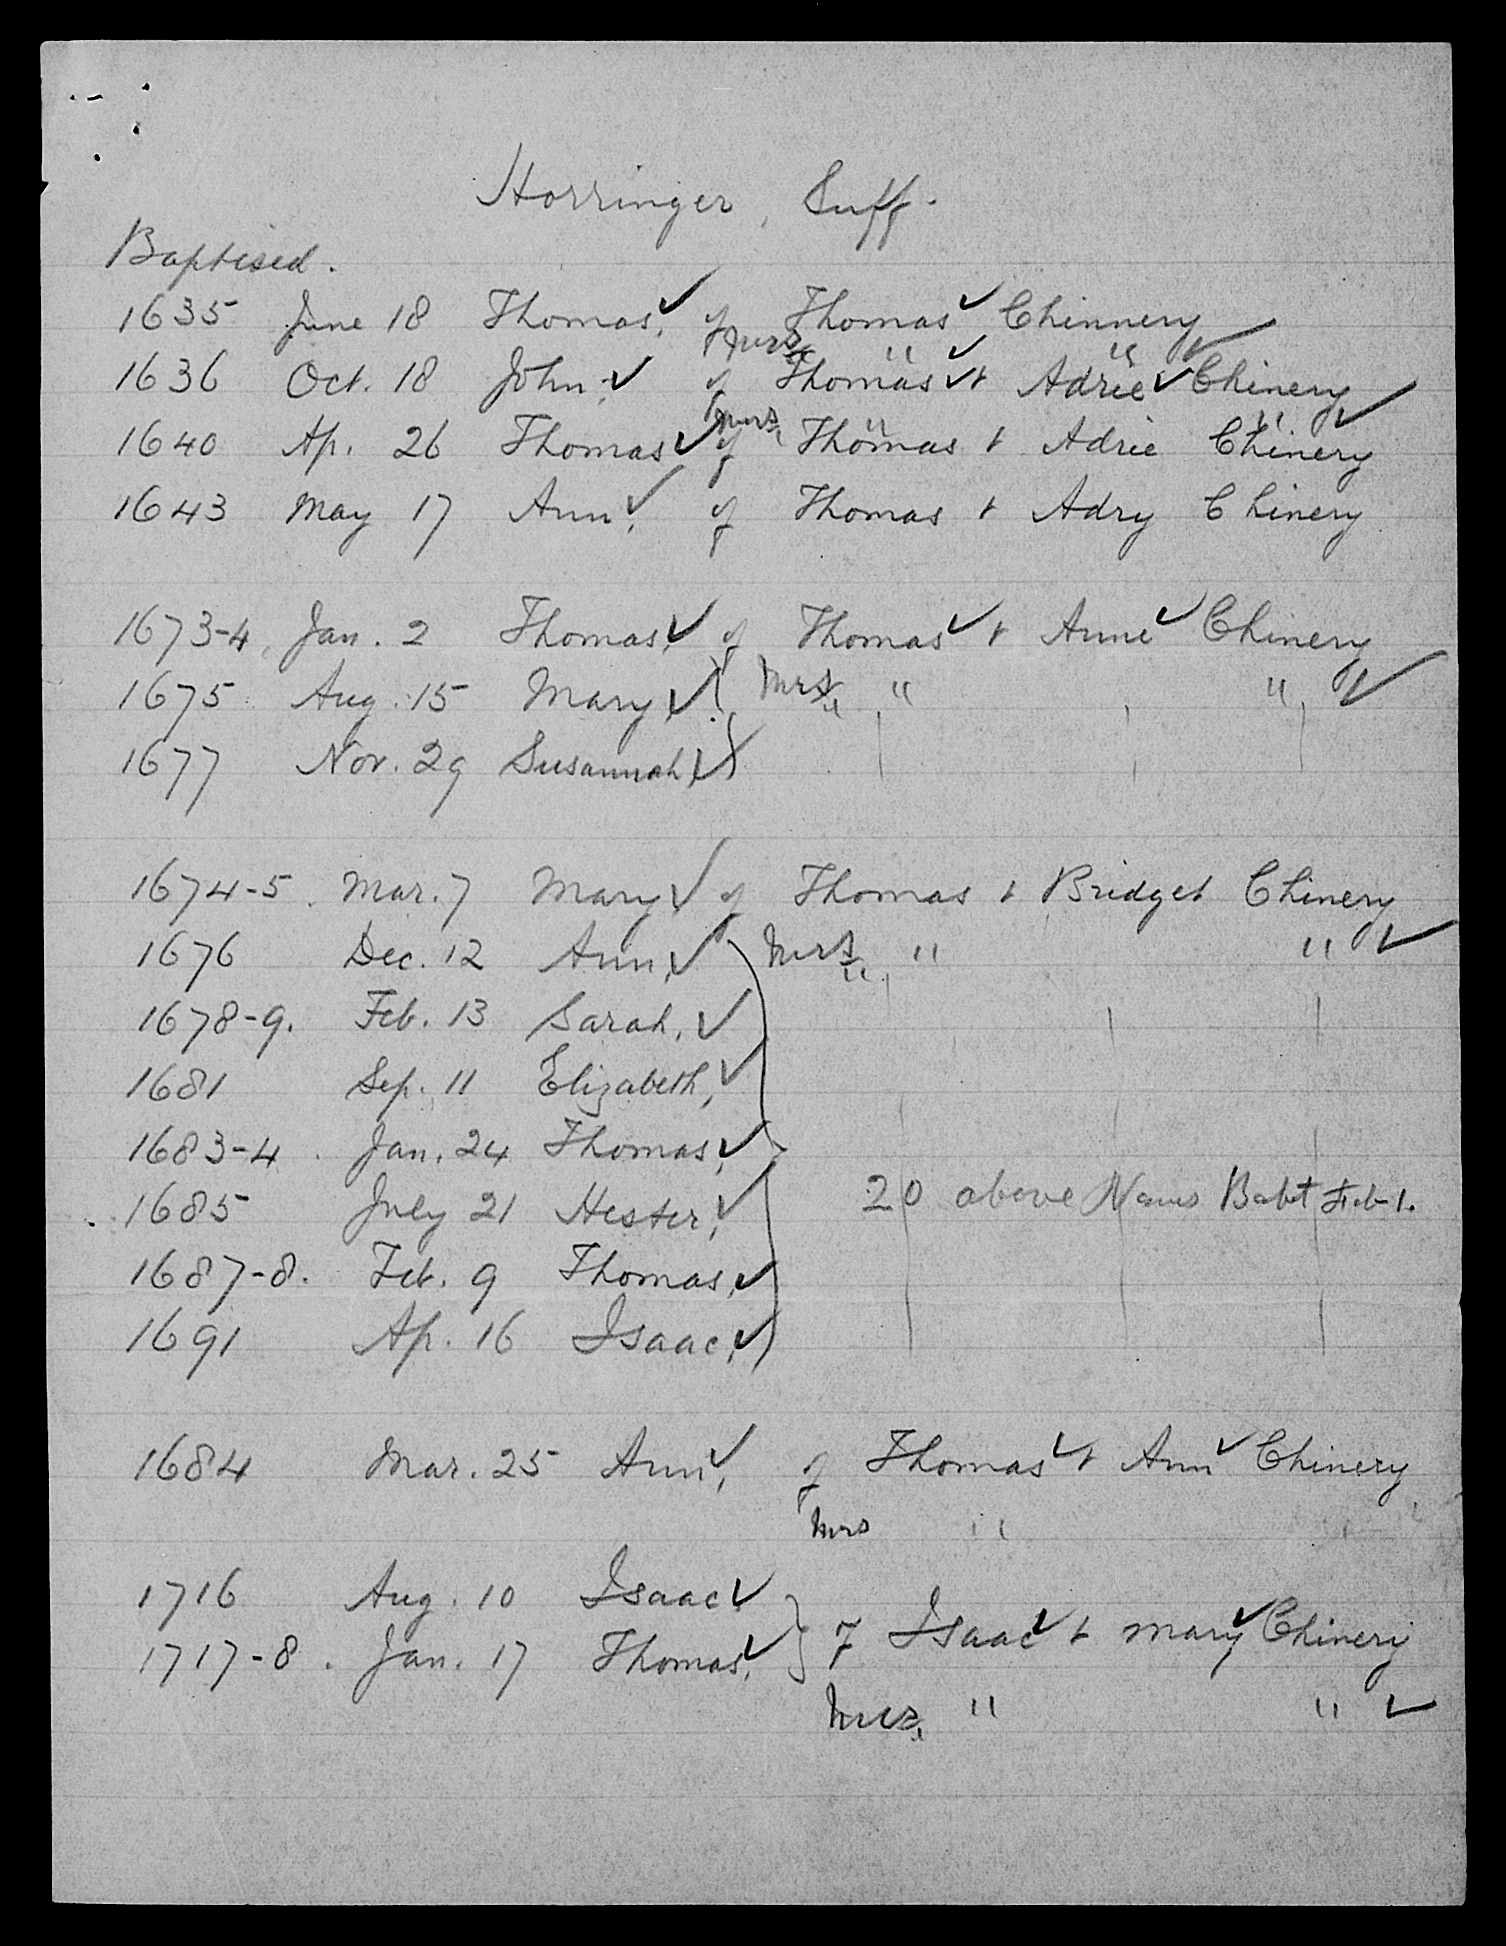 Horringer, Suff.
Baptised.
1635 June 18 Thomas, of Thomas Chinnery
Mrs " "
1636 Oct. 18 John, of Thomas + Adrie Chinery
Mrs " "
1640 Ap. 26 Thomas of Thomas + Adrie Chinery
1643 May 17 Ann, of Thomas + Adry Chinery
1673-4, Jan. 2 Thomas, of Thomas + Anne Chinery
1675 Aug. 15 Mary, Mrs " "
1677 Nov. 29 Susannah,
1674-5. Mar. 7 Mary of Thomas + Bridget Chinery
1676 Dec. 12 Ann, Mrs " "
1678-9. Feb. 13 Sarah,
1681 Sep. 11 Elizabeth,
1683-4. Jan. 24 Thomas,
1685 July 21 Hester, 20 above Names Babt Feb 1.
1687-8. Feb. 9 Thomas,
1691 Ap. 16 Isaac,
1684 Mar. 25 Ann, of Thomas + Ann Chinery
Mrs " "
1716 Aug. 10 Isaac
1717-8. Jan. 17 Thomas, } of Isaac + Mary Chinery
Mrs " "